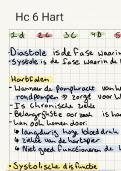 Hc 6 Hart
1d 2c 3c 4D 5
• Diastole is de fase waarin
• Systole is de fase waarin de
Hartfalen
- Wanneer de pompkracht van h
rondpompen → zorgt voor
- Is chronische ziekte
- Belangrijkste oorzaak is ha
- Kan ook komen door:
langdurig hoge bloeddruk
ziekte van de hartspier
Niet goed functioneren de
• Systolische disfunctie